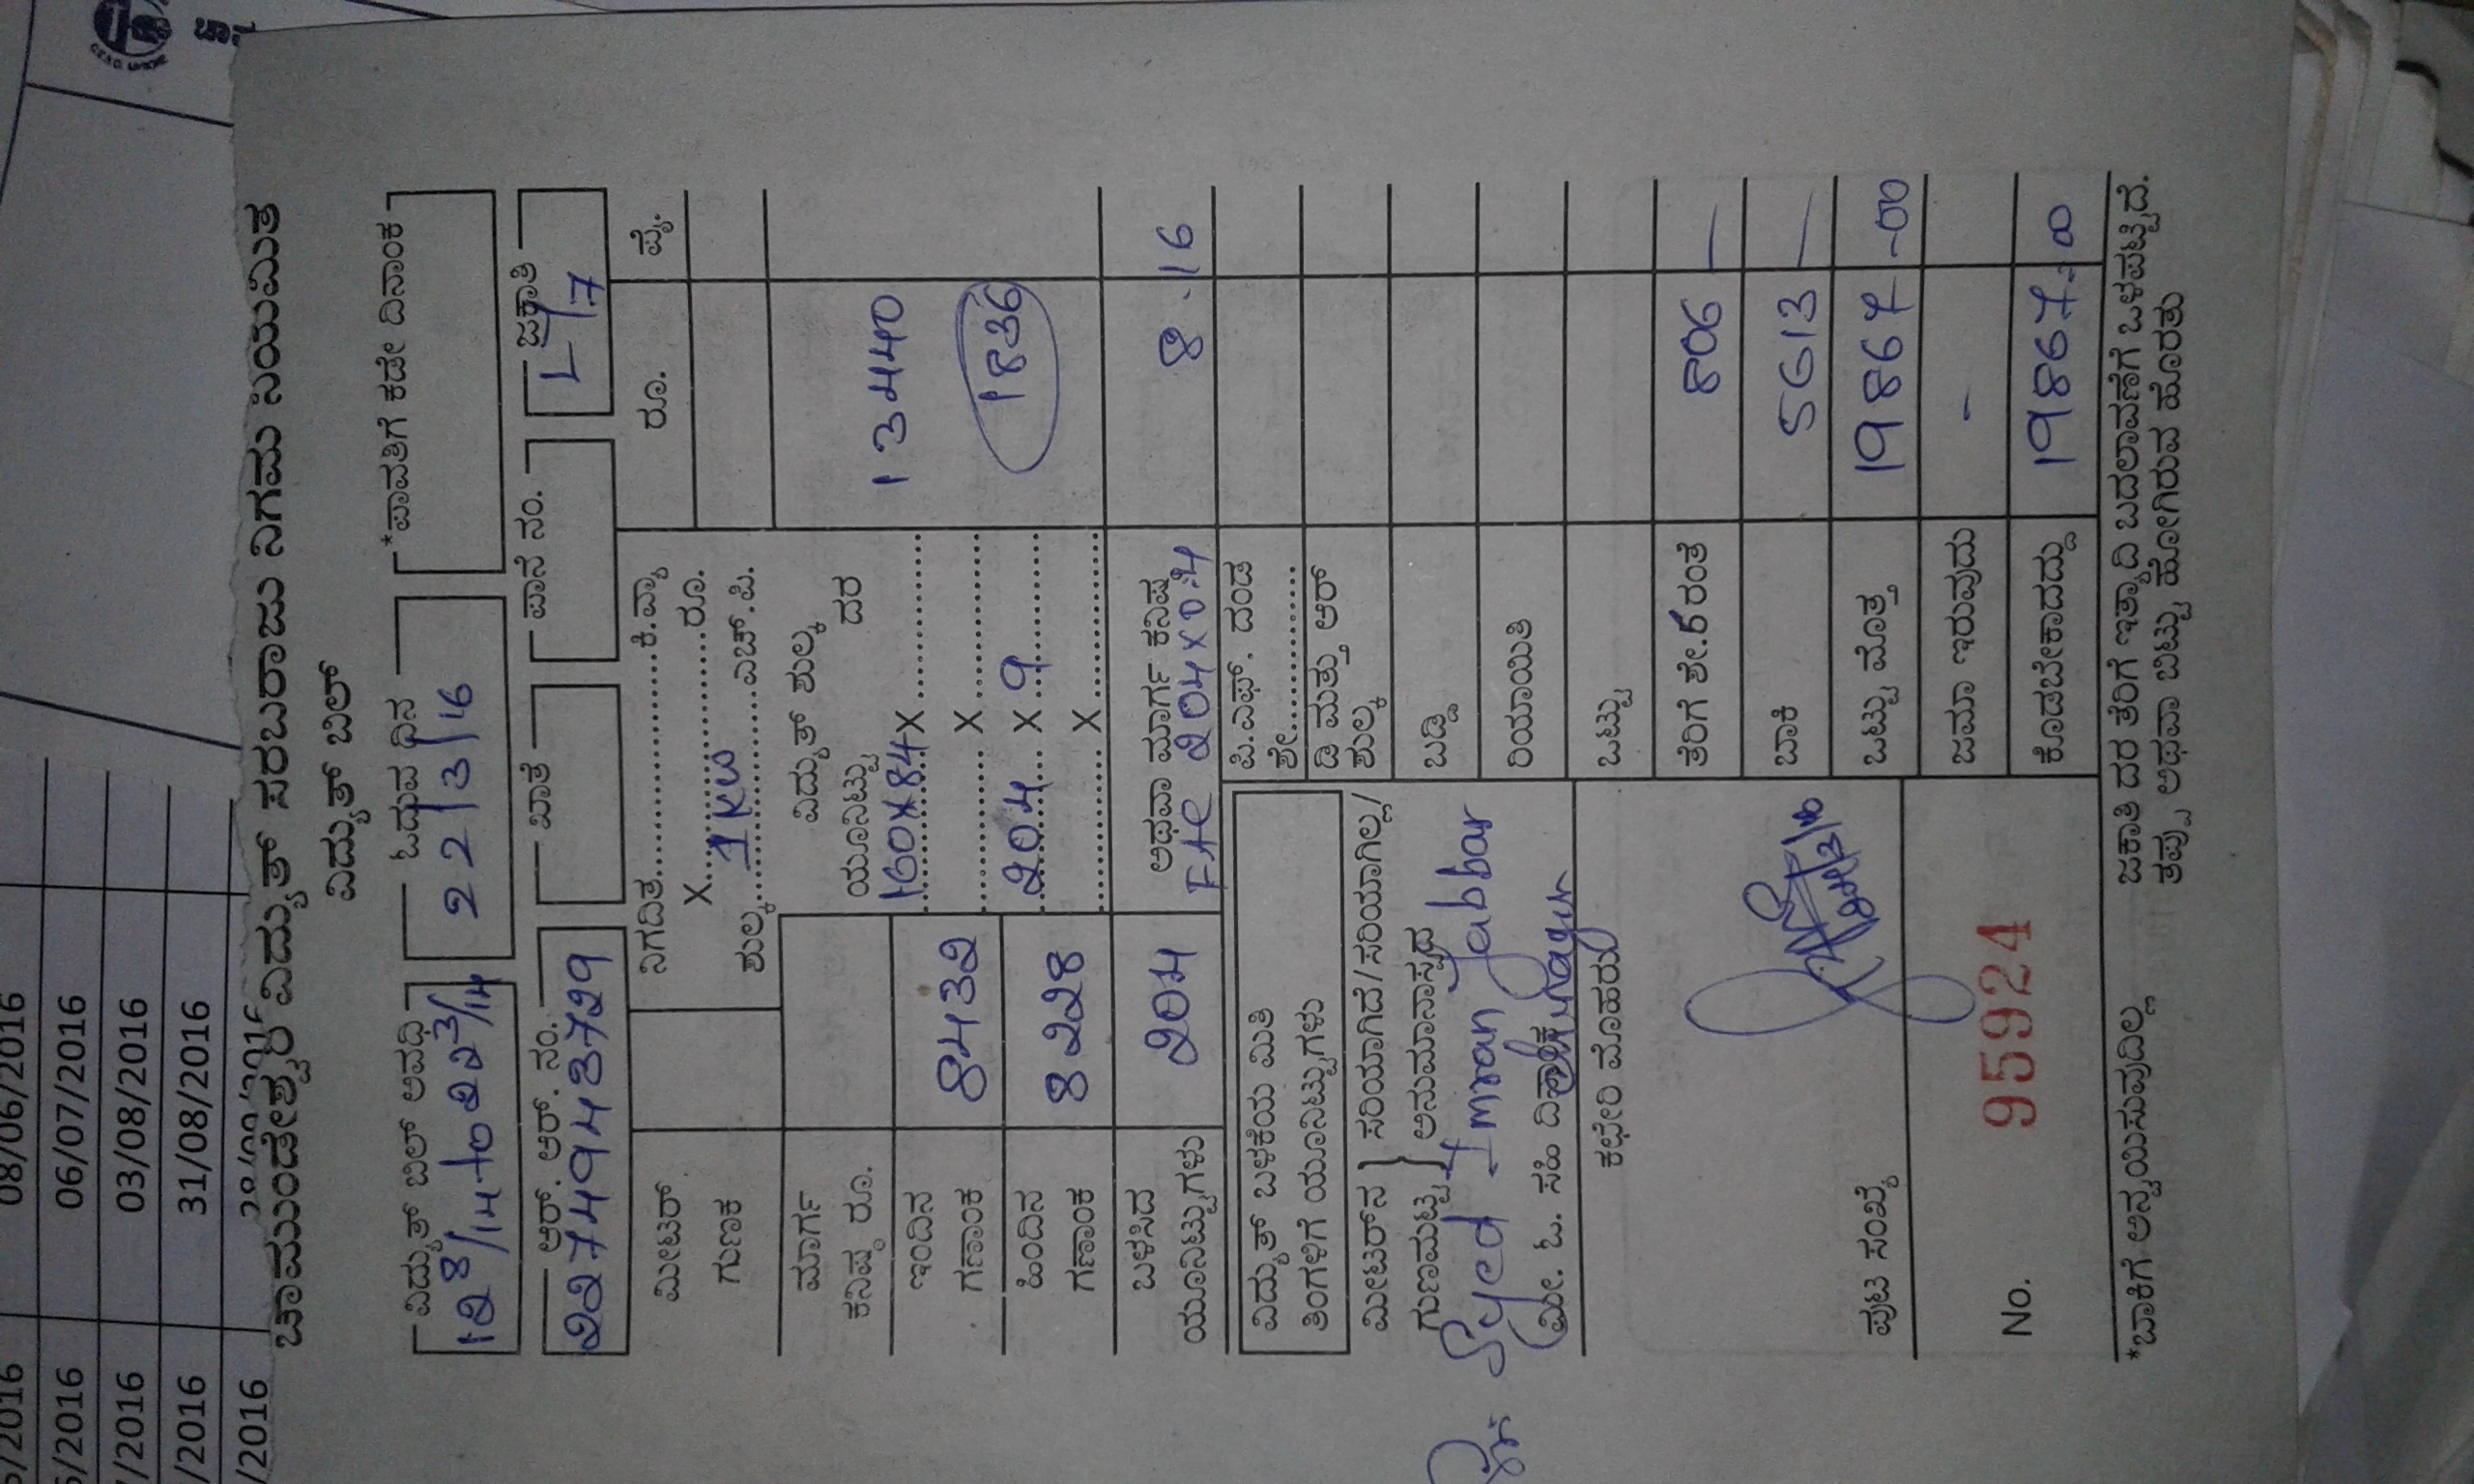 08/06/2016
06/07/2016
03/08/2016
31/08/2016
/2016
/2016
/2016
/2016
/2016
ಚಾಮುಂಡೇಶ್ವರಿ ವಿದ್ಯುತ್ ಸರಬರಾಜು ನಿಗಮ ನಿಯಮಿತ
ವಿದ್ಯುತ್ ಬಿಲ್
ವಿದ್ಯುತ್ ಬಿಲ್ ಅವಧಿ ಓದುವ ದಿನ *ಪಾವತಿಗೆ ಕಡೇ ದಿನಾಂಕ
128/14 to 223/14 22/3/16
ಆರ್. ಆರ್. ನಂ. ಖಾತೆ ಪಾನೆ ನಂ. ಜಕಾತಿ
2274943729 L/7
ಮೀಟರ್ ಗುಣಕ ನಿಗದಿತ ಕಿ.ವ್ಯಾ ರೂ. ಪೈ.
X ರೂ.
ಶುಲ್ಕ 1 KW ಎಚ್.ಪಿ.
ಮಾರ್ಗ ಕನಿಷ್ಠ ರೂ. ವಿದ್ಯುತ್ ಶುಲ್ಕ
ಯೂನಿಟ್ಟು ದರ
ಇಂದಿನ ಗಣಾಂಕ 8432 160X84 X 13440
X 1836
ಹಿಂದಿನ ಗಣಾಂಕ 8228 204 X 9
X
ಬಳಸಿದ ಯೂನಿಟ್ಟುಗಳು 204 ಅಥವಾ ಮಾರ್ಗ ಕನಿಷ್ಠ
FAC 204X0.4 8.16
ವಿದ್ಯುತ್ ಬಳಕೆಯ ಮಿತಿ ಪಿ.ಎಫ್. ದಂಡ
ತಿಂಗಳಿಗೆ ಯೂನಿಟ್ಟುಗಳು ಶೇ.
ಡಿ ಮತ್ತು ಆರ್ ಶುಲ್ಕ
ಮೀಟರ್‌ನ ಗುಣಾಮಟ್ಟ } ಸರಿಯಾಗಿದೆ/ಸರಿಯಾಗಿಲ್ಲ/ ಅನುಮಾನಾಸ್ಪದ
ಬಡ್ಡಿ
Syed Imran Jabbar
ಮೀ. ಓ. ಸಹಿ
ರಿಯಾಯಿತಿ
ಕಛೇರಿ ಮೊಹರು ಒಟ್ಟು
ತೆರಿಗೆ ಶೇ.6 ರಂತೆ 806 —
ಬಾಕಿ 5613 —
ಪುಟ ಸಂಖ್ಯೆ ಒಟ್ಟು ಮೊತ್ತ 19867-00
ಜಮಾ ಇರುವುದು -
No. 95924 ಕೊಡಬೇಕಾದದ್ದು 19867=00
*ಬಾಕಿಗೆ ಅನ್ವಯಿಸುವುದಿಲ್ಲ ಜಕಾತಿ ದರ ತೆರಿಗೆ ಇತ್ಯಾದಿ ಬದಲಾವಣೆಗೆ ಒಳಪಟ್ಟಿದೆ.
ತಪ್ಪು ಅಥವಾ ಬಿಟ್ಟು ಹೋಗಿರುವ ಹೊರತು